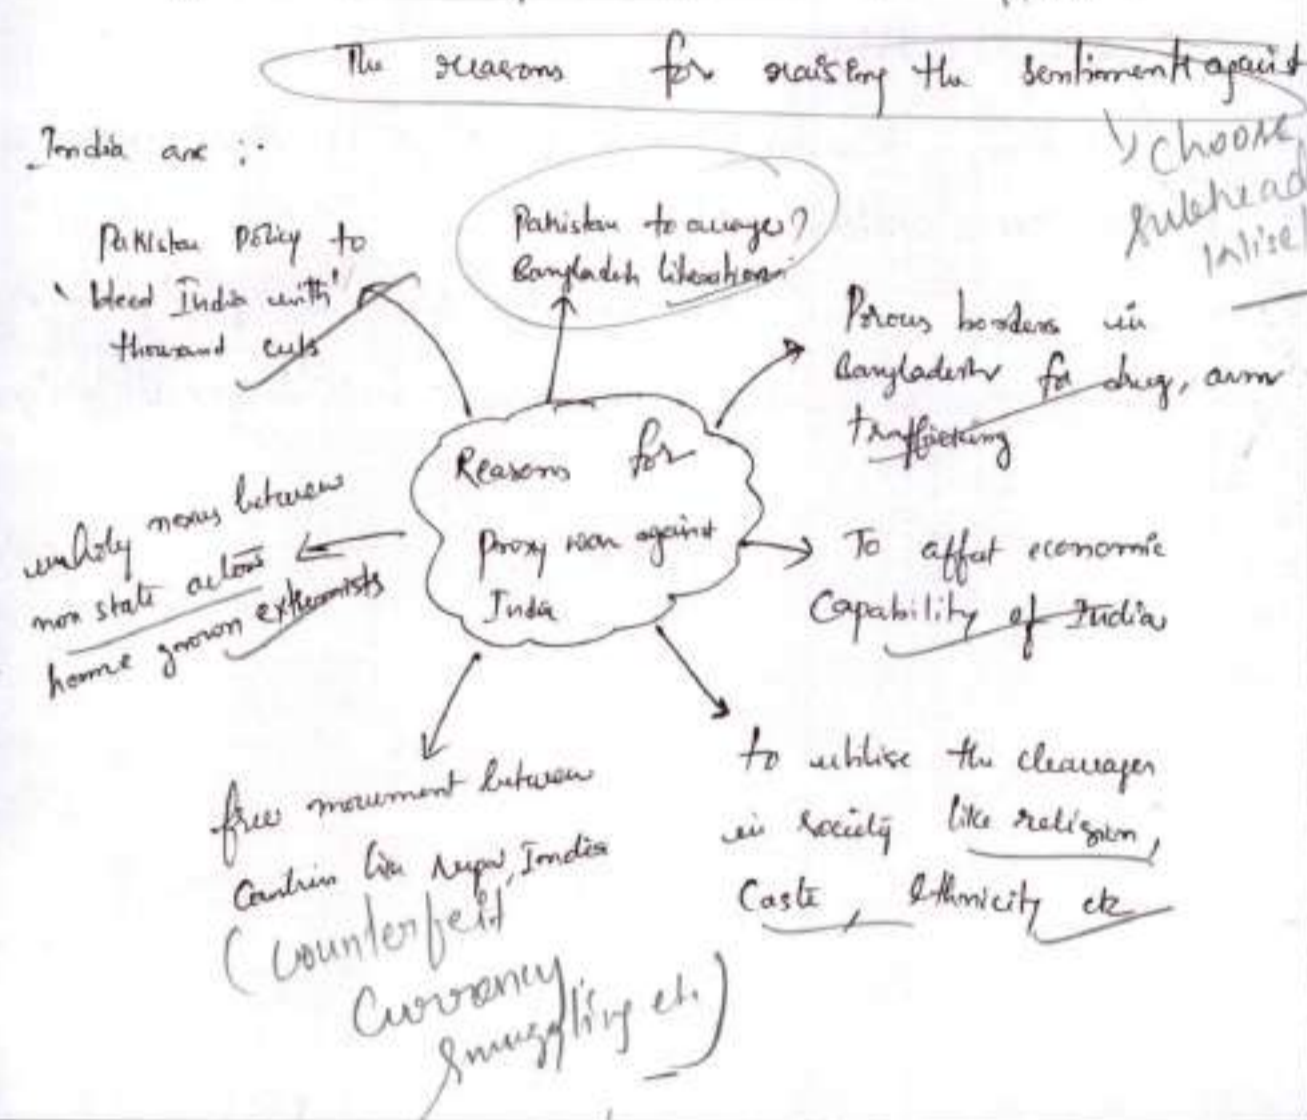 The reasons for raising the sentiments against
India are :-
choose
subhead
Pakistan Policy to
'bleed India with'
thousand cuts
Pakistan to avenge?
Bangladesh liberation
Porous borders in
Bangladesh for drug, arm
trafficking
Reasons for
proxy war against
India
unholy nexus between
non state actors
home grown extremists
To affect economic
Capability of India
free movement between
Countries like Nepal, India
(Counterfeit
Currency
Smuggling etc.)
to utilise the cleavages
in society like religion,
Caste, ethnicity etc